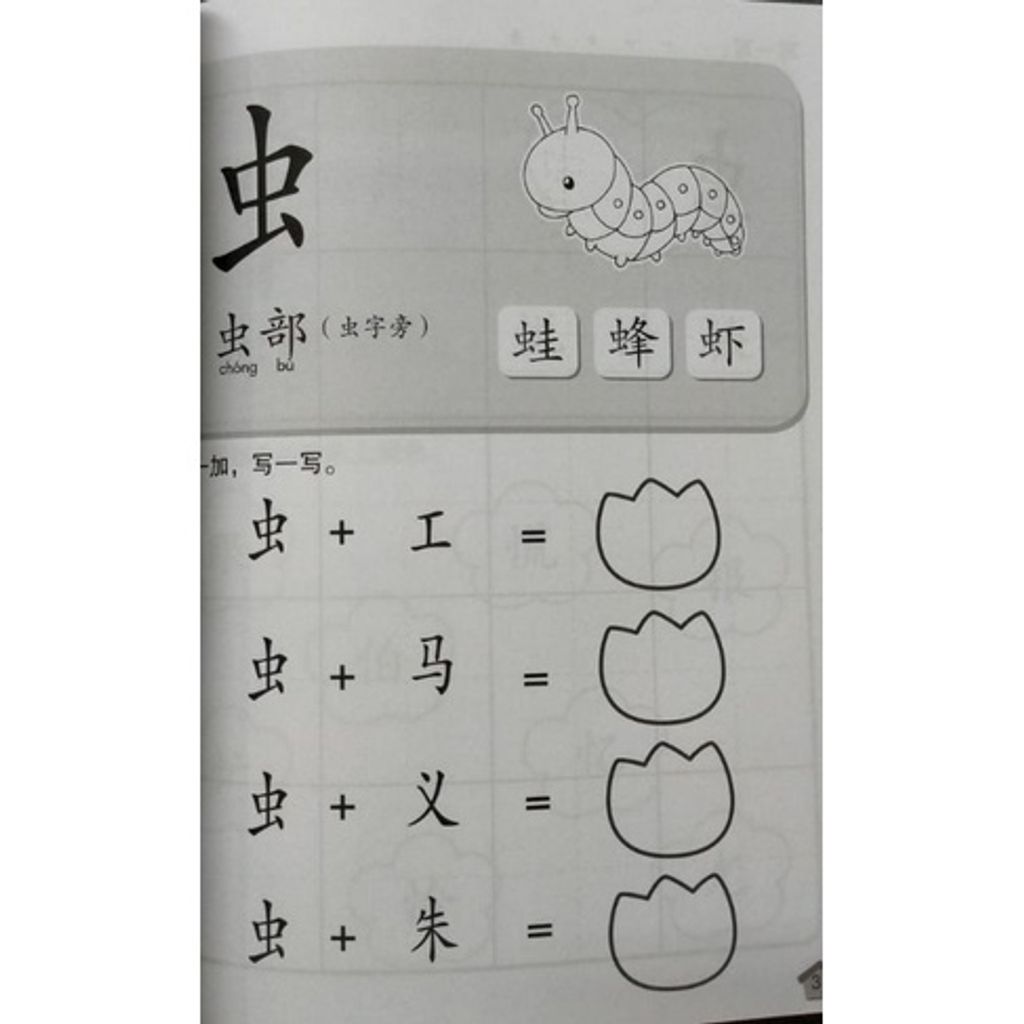 虫
虫部（虫字旁）
chóng bù
蛙 蜂 虾
一加，写一写。
虫 + 工 =
虫 + 马 =
虫 + 义 =
虫 + 朱 =
3